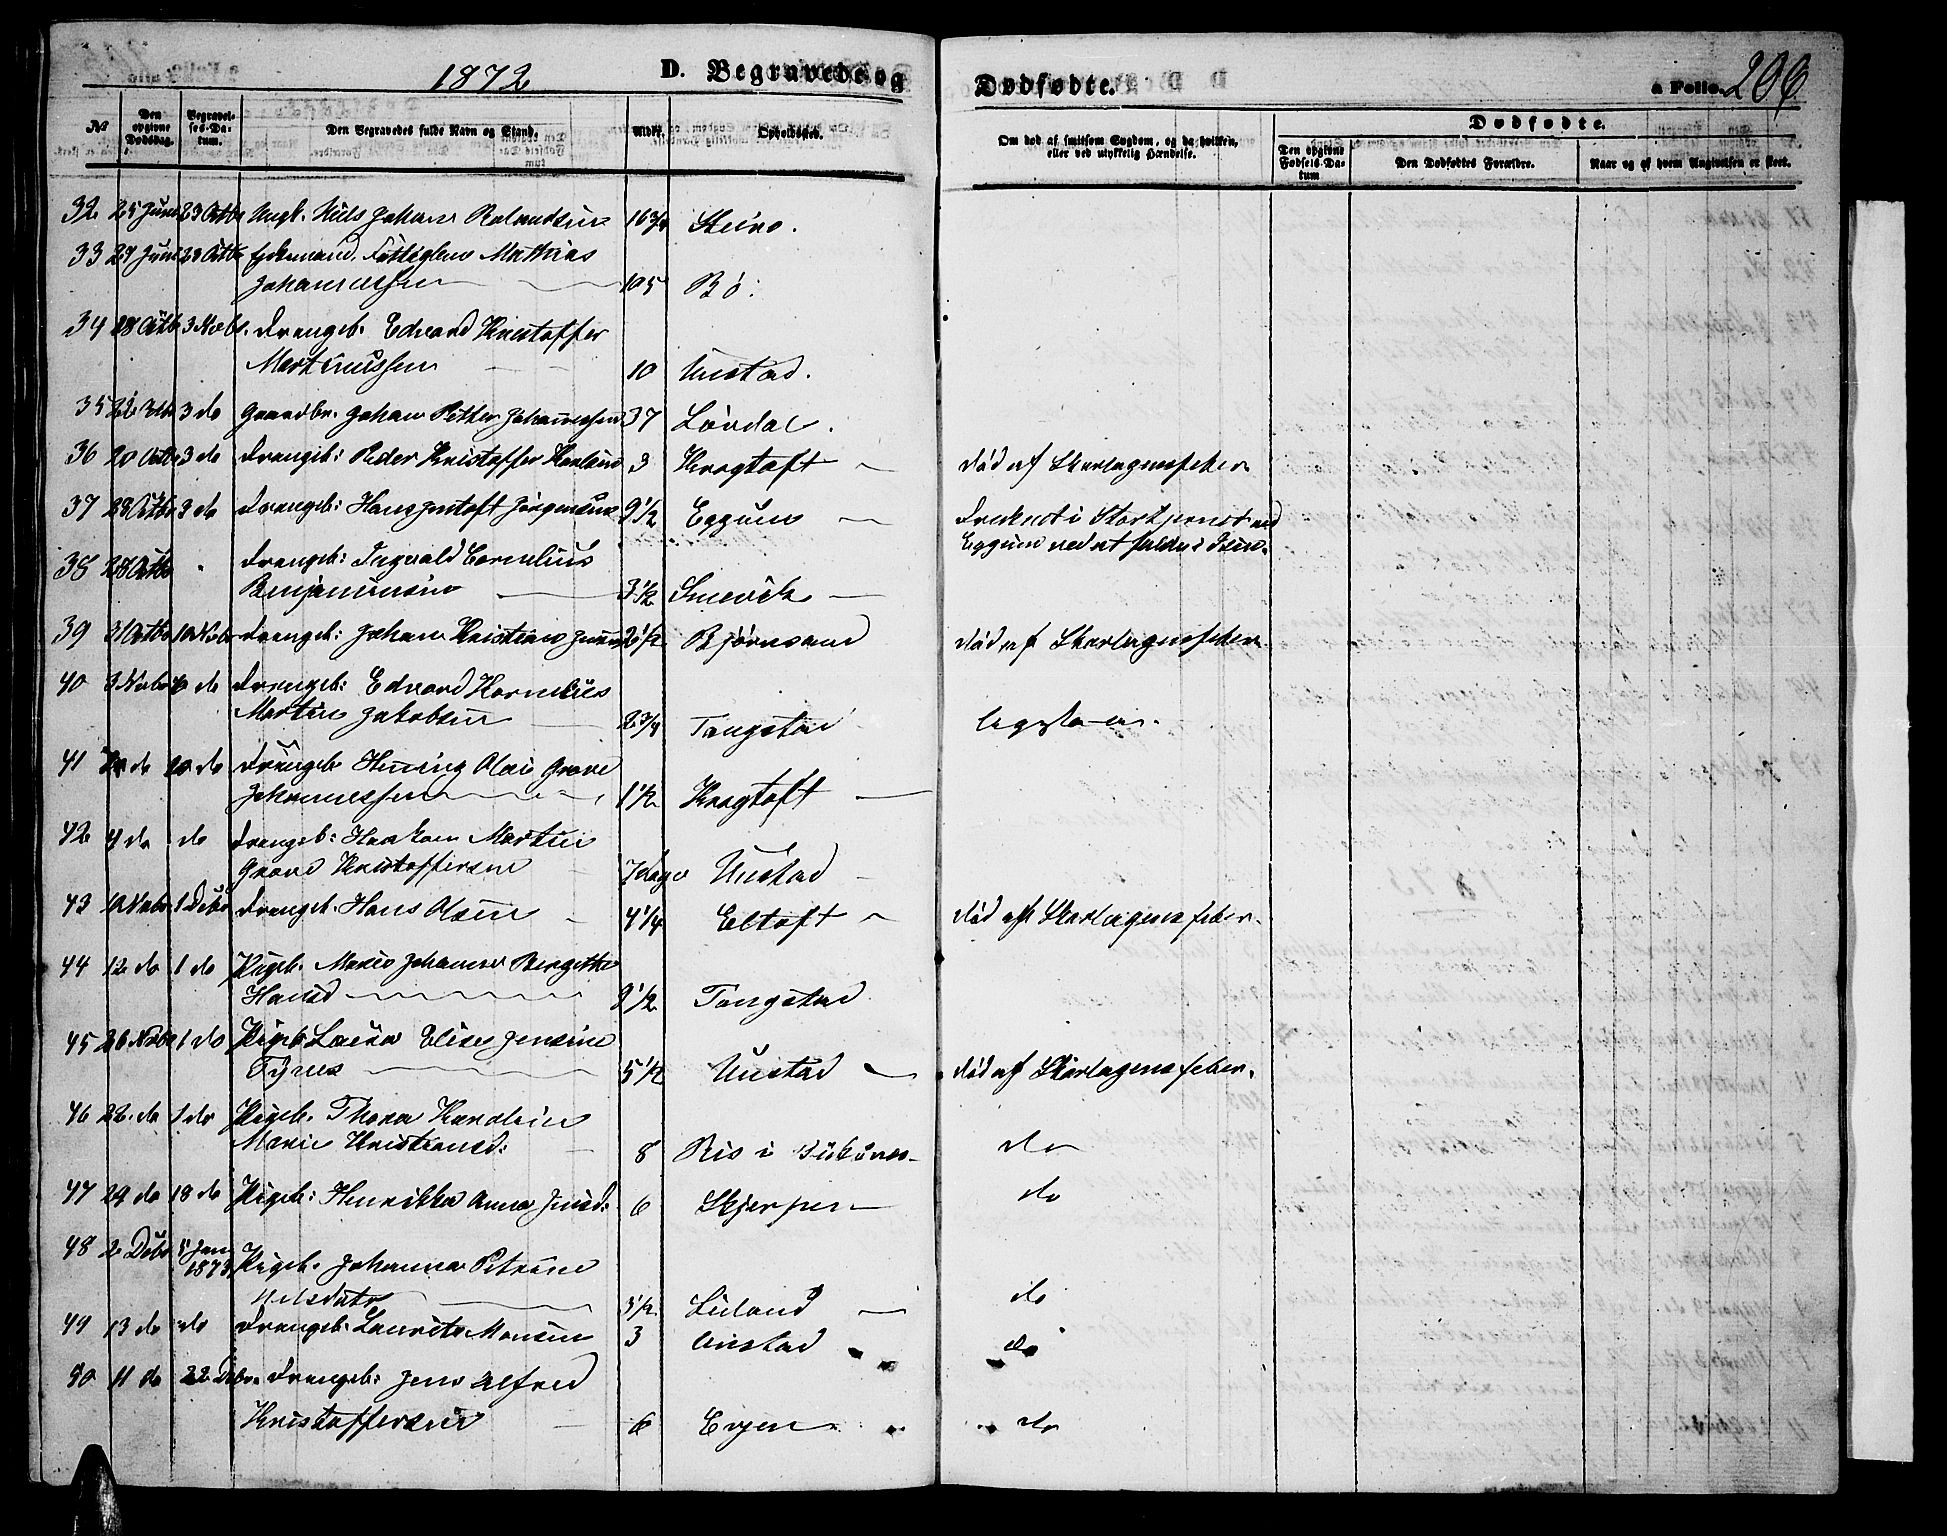 1872 D. Begravede og Dødfødte. a Folio. 206
№ Den opgivne Dødsdag. Begravel-ses-Da-tum. Den Begravedes fulde Navn og Stand. Alder. Opholdssted. Om død af smitsom Sygdom, og da hvilken, eller ved ulykkelig Hændelse. Dødfødte.
Den opgivne Fødsels-Da-tum Den Dødfødtes Forældre. Naar og af hvem Angivelsen er skeet.
32 25 Juni 23 Octbr Ungk. Nils Johan Rolandsen 16 3/4 Steine.
33 29 Juni 23 Octbr Enkemand, Fattiglem Mathias
Johannessen 105 Bø.
34 28 Octb. 3 Novbr. Drengeb. Edvard Kristoffer
Martinussen 10 Unstad.
35 22 3 do Gaardbr. Johan Petter Johannessen 37 Lørdal.
36 20 Octbr 3 do Drengeb: Peder Kristoffer Karlsen 3 Kragtoft død af Skarlagensfeber
37 28 Octbr 3 do Drengeb: Hans Jentoft Jørgensen 9 1/2 Eggum Druknet i Storkjernet ved
Eggum ved at falde i Isen.
38 28 Octbr Drengeb: Ingvald Cornelius
Benjaminsen 3 1/2 Smevik
39 31 Octbr 10 Novbr Drengeb: Johan Kristian 2 1/2 Bjørnsand død af Skarlagensfeber
40 3 Novbr do Drengeb: Edvard Kornelius
Martin Jakobsen 2 3/4 Tangstad
41 do 10 do Drengeb. Hening Olai Grove
Johannessen 1 1/2 Kragtoft
42 4 do do Drengeb: Haakon Martin
Grove Kristoffersen 7 dage Unstad
43 10 Novbr 1 Debr Drengeb. Hans Olsen 4 1/4 Eltoft død af Skarlagensfeber.
44 12 do 1 do Pigeb. Maria Johanna Bergitte
Hansd 9 1/2 Tangstad
45 26 Novbr 1 do Pigeb. Laura Elise Jensine
Fynes 5 1/2 Unstad død af Skarlagensfeber.
46 22 do 1 do Pigeb. Thora Karoline
Marie Kristiansd: 8 Ris i do
47 29 do 18 do Pigeb: Henrikka Anna Jensd: 6 Skjerpen do
48 2 Debr 5 Jan
1873 Pigeb. Johanna Petrine
Nilsdatr 3 1/2 Liland do
49 13 do do Drengeb. Laurits Monsen 3 Unstad do
50 11 do 22 Debr. Drengeb: Jens Alfred
Kristoffersen 6 Evjen do